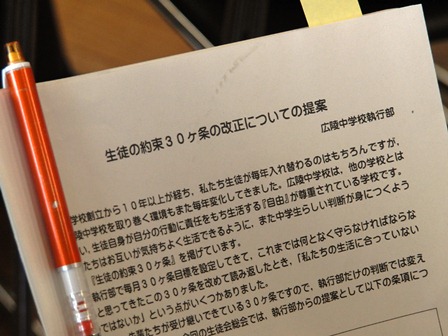 生徒の約束30ヶ条の改正についての提案
広陵中学校執行部
学校創立から10年以上が経ち、私たち生徒が毎年入れ替わるのはもちろんですが、
陵中学校を取り巻く環境もまた毎年変化してきました。広陵中学校は、他の学校とは
い、生徒自身が自分の行動に責任をもち生活する『自由』が尊重されている学校です。
たちはお互いが気持ちよく生活できるように、また中学生らしい判断が身につくよう
『生徒の約束30ヶ条』を掲げています。
執行部で毎月30ヶ条目標を設定してきて、これまでは何となく守らなければならな
と思ってきたこの30ヶ条を改めて読み返したとき、「私たちの生活に合っていない
ではないか」という点がいくつかありました。
生徒たちが受け継いできている30ヶ条ですので、執行部だけの判断では変え
回の生徒総会では、執行部からの提案として以下の条項につ